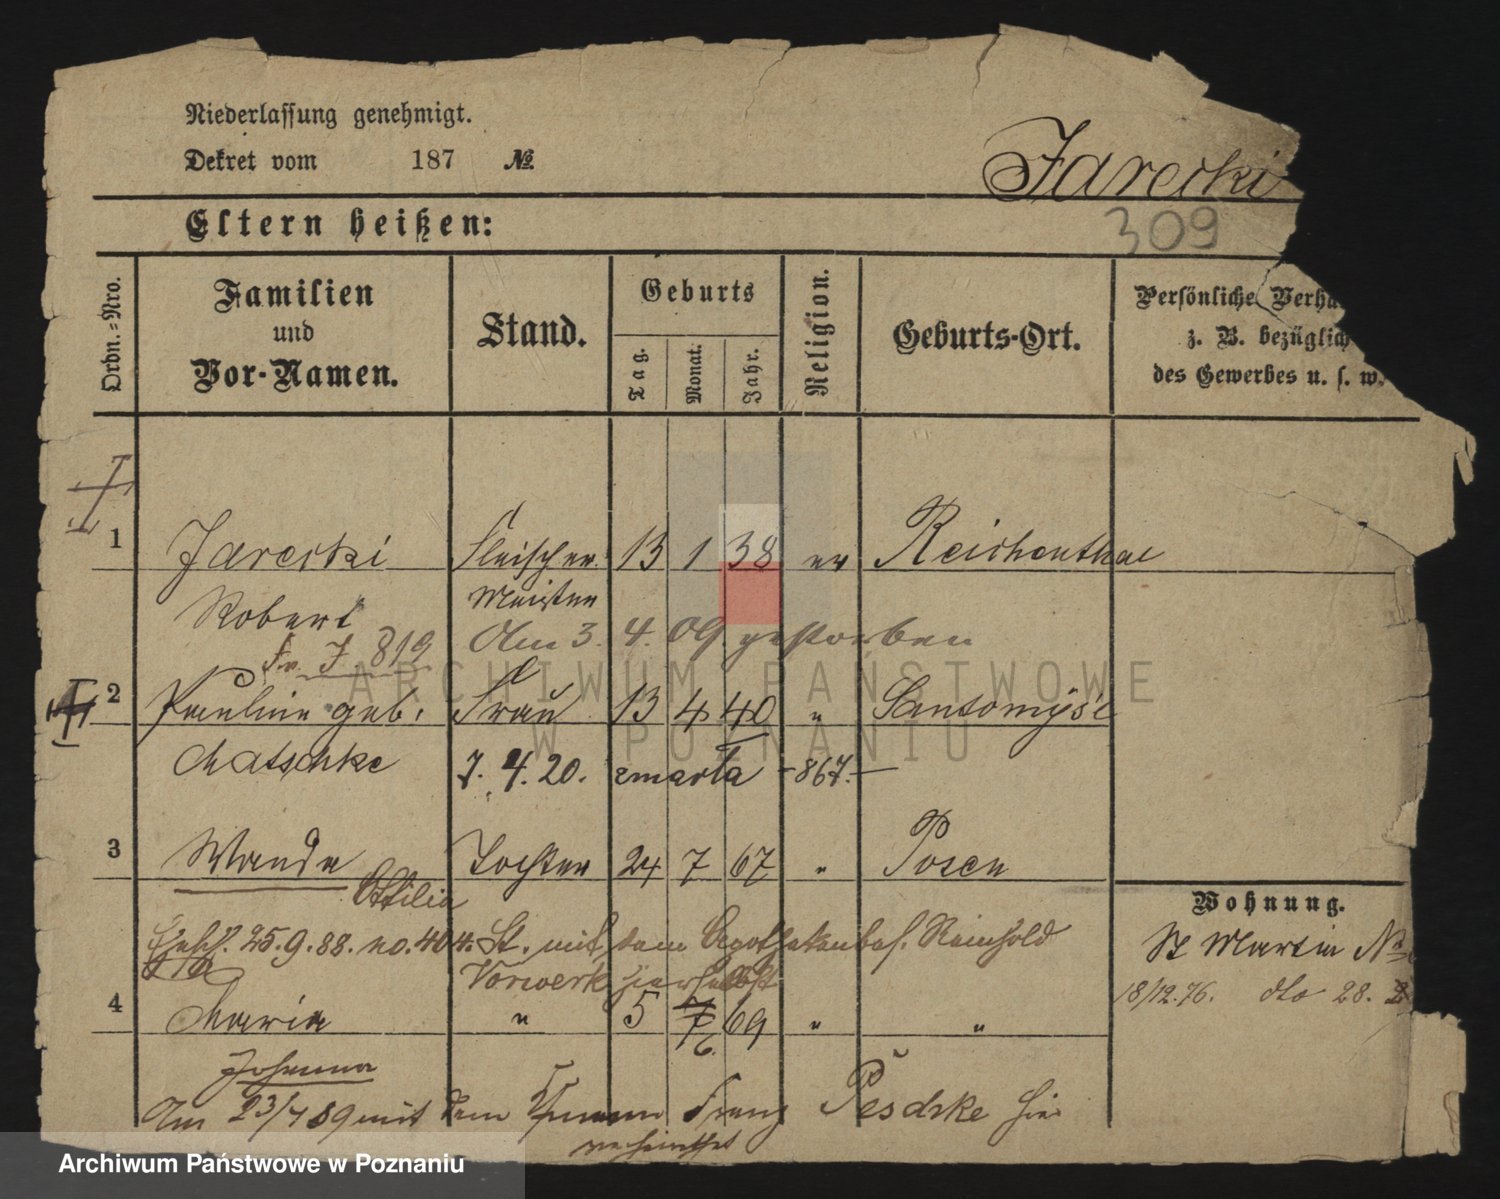 Niederlassung genehmigt.
Dekret vom 187 №
Jarecki
309
Eltern heißen:
Ordn.-Nro.
Familien und Vor-Namen.
Stand.
Geburts
Tag. Monat. Jahr.
Religion.
Geburts-Ort.
Persönliche Verhä
z. B. bezüglich
des Gewerbes u. s. w.
1 Jarecki Fleischer 13 1 38 ev Reichenthal
Robert Meister
Am 3. 4. 09 gestorben
Fr. J 819
2 Pauline geb. Frau 13 4 40 " Santomyśl
Matschke 7. 4. 20. zmarła -867.-
3 Wanda Tochter 24 7 67 " Posen
Ottilie
Wohnung.
25.9.88. no. 404. St. mit dem Apothekenbes. Reinhold
Vorwerk hierselbst
St Martin №
18/12.76. dto 28.
4 Maria " 5 7 69 " "
6.
Johanna
Am 23/4 89 mit dem Franz Peschke hier
verheirathet
ARCHIWUM PAŃSTWOWE
W POZNANIU
Archiwum Państwowe w Poznaniu